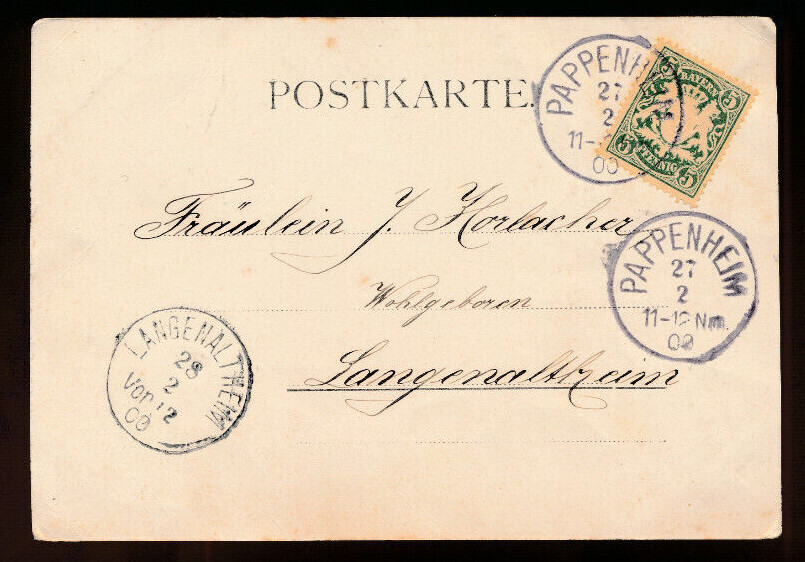 POSTKARTE.
PAPPENHEIM
27
2
11-
00
5 BAYERN 5
5 PFENNIG 5
Fräulein J. Horlacher
PAPPENHEIM
27
2
11-12 Nm.
00
Wohlgeboren
Langenaltheim
LANGENALTHEIM
28
2
Vor 12
00